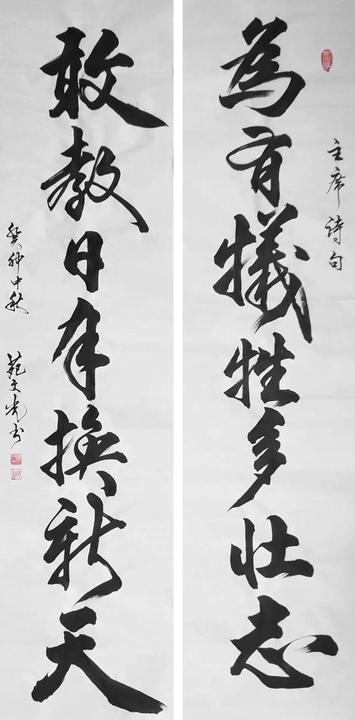 為有犧牲多壯志
主席詩句
敢教日月換新天
癸卯中秋